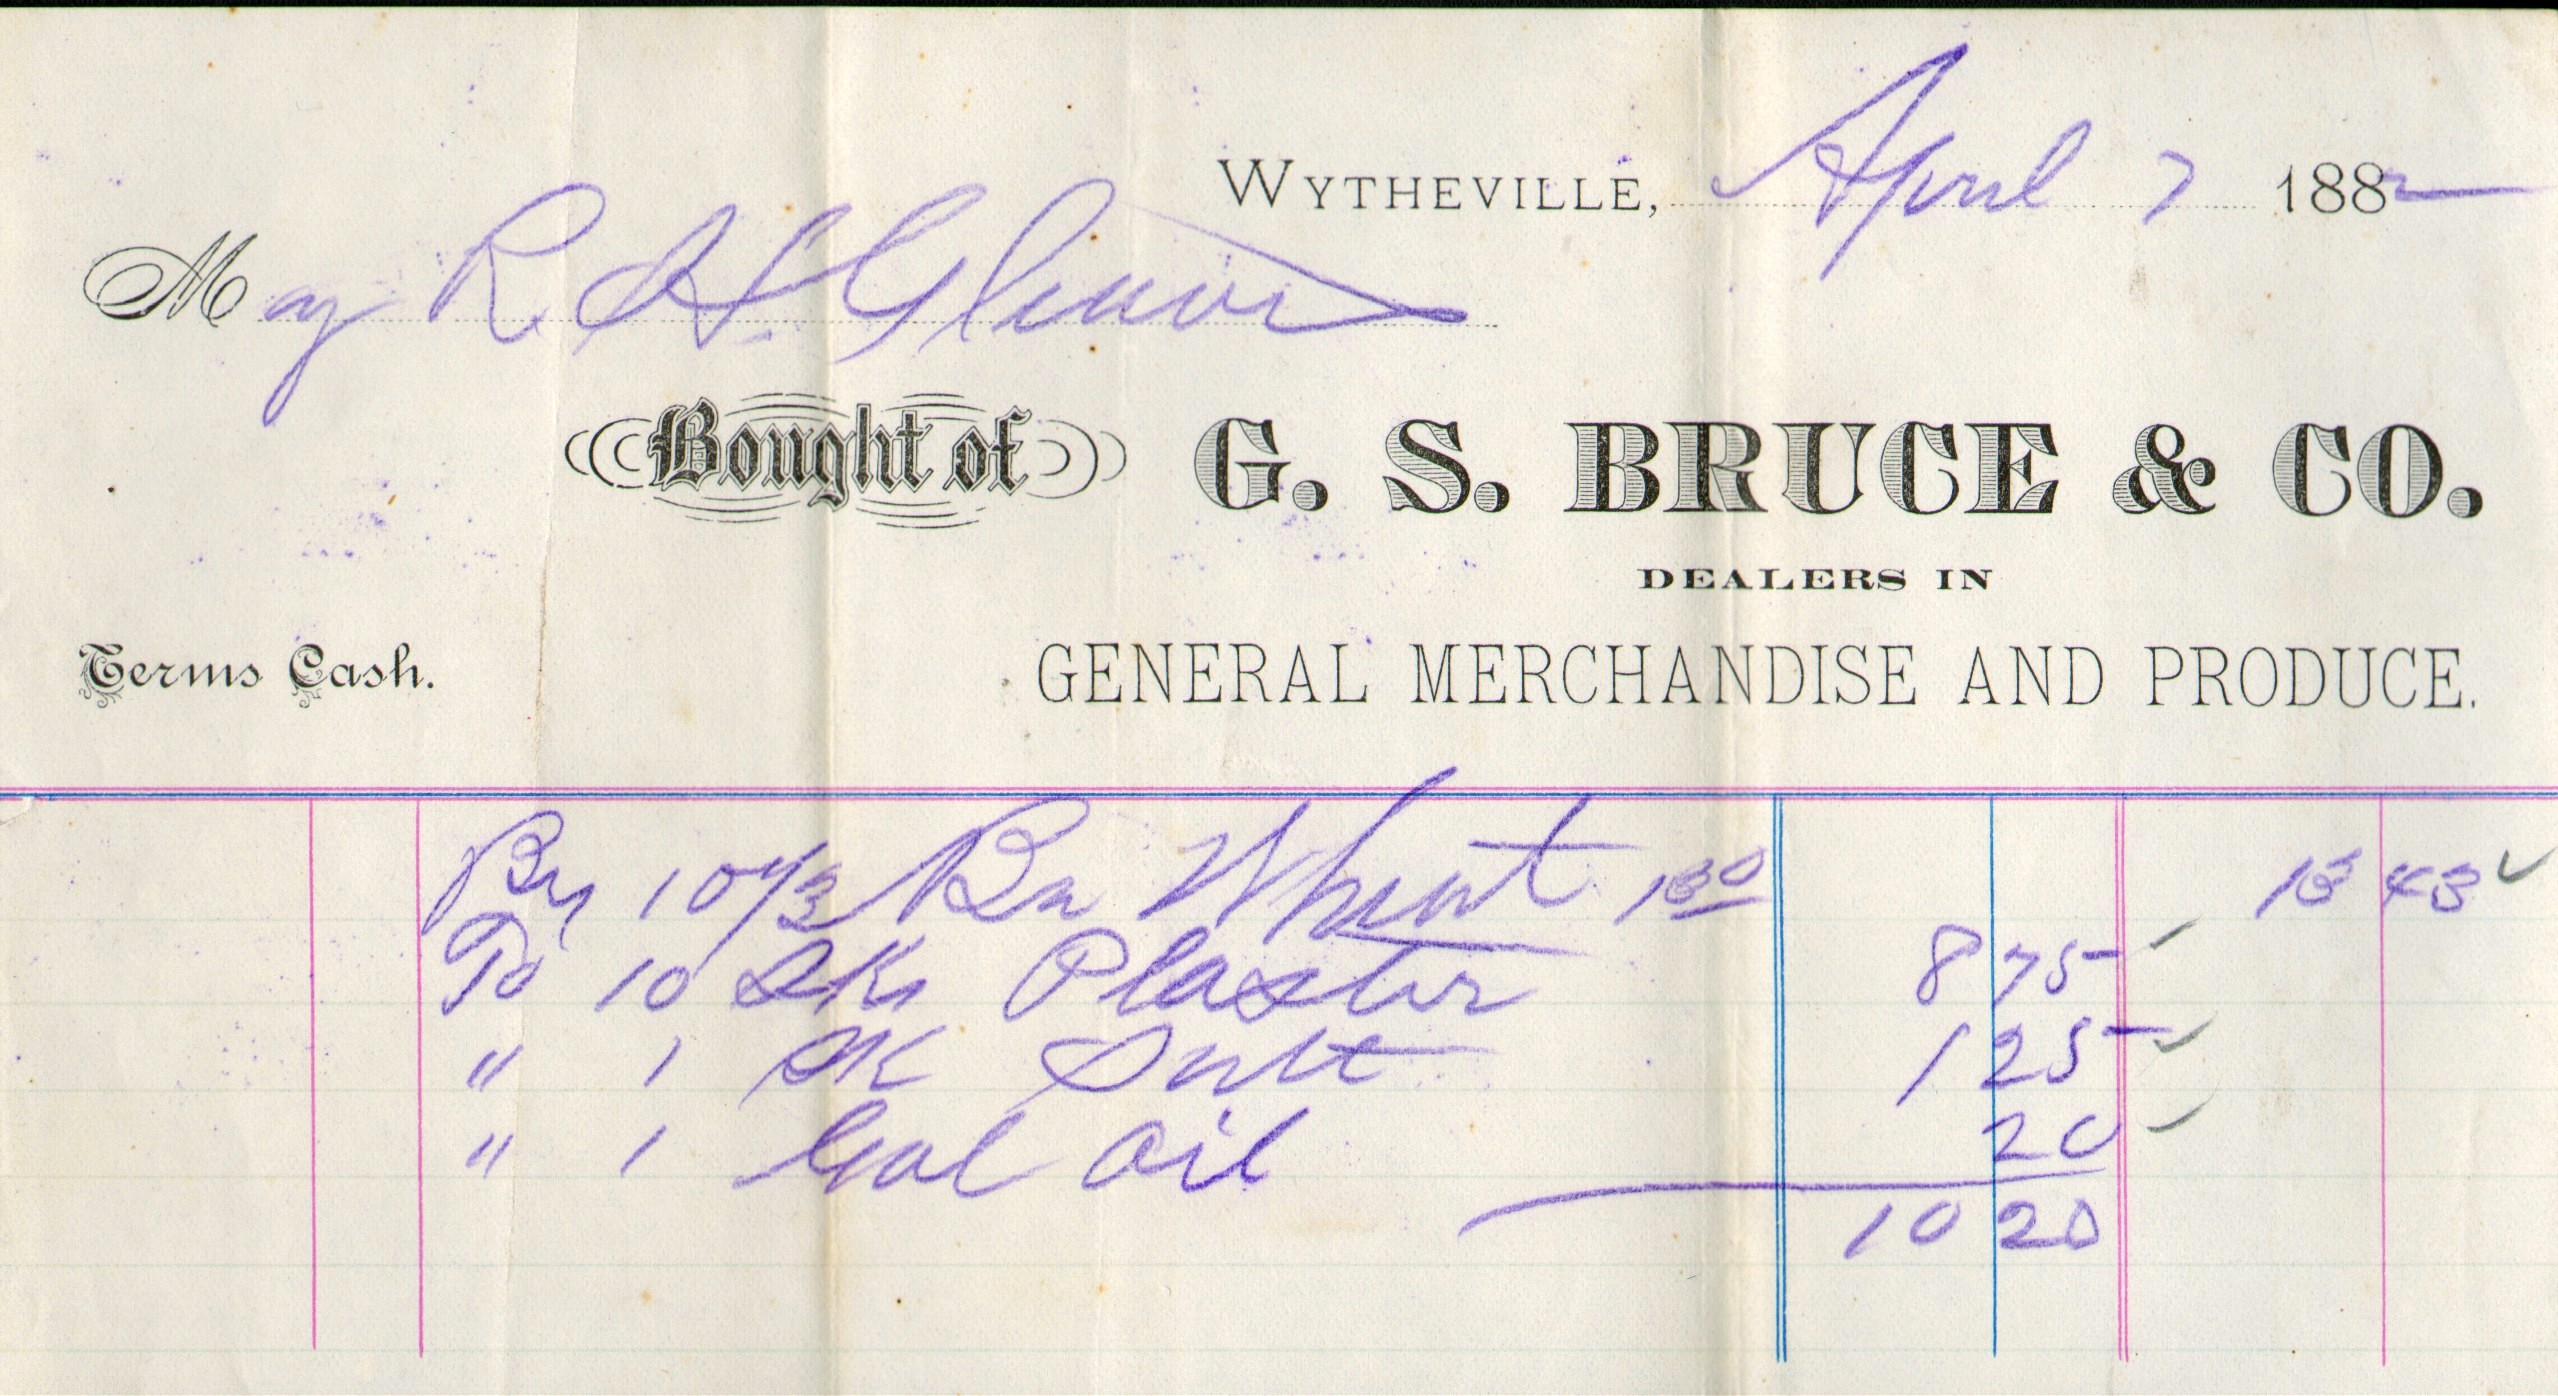 WYTHEVILLE, April 7 1882
Maj R. H. Gleaves
Bought of G. S. BRUCE & CO.
DEALERS IN
Terms Cash. GENERAL MERCHANDISE AND PRODUCE.
By 10 1/3 Bu Wheat 130 13 43 ✓
To 10 Sks Plaster 8 75 ✓
" 1 SK Salt 1 25 ✓
" 1 Gal Oil 20 ✓
10 20